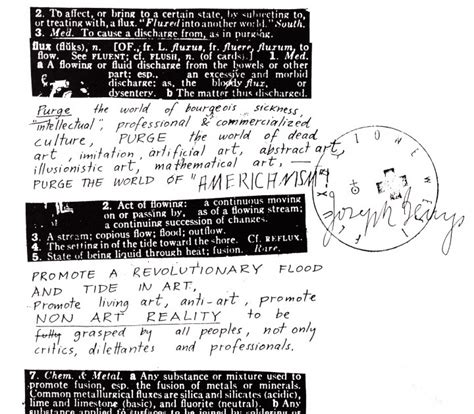 2. To affect, or bring to a certain state, by subjecting to,
or treating with, a flux. "Fluxed into another world." South.
3. Med. To cause a discharge from, as in purging.
flux (flŭks), n. [OF., fr. L. fluxus, fr. fluere, fluxum, to
flow. See FLUENT; cf. FLUSH, n. (of cards).] 1. Med.
a A flowing or fluid discharge from the bowels or other
part; esp., an excessive and morbid
discharge; as, the bloody flux, or
dysentery. b The matter thus discharged.
Purge the world of bourgeois sickness,
"intellectual", professional & commercialized
culture, PURGE the world of dead
art, imitation, artificial art, abstract art,
illusionistic art, mathematical art, —
PURGE THE WORLD OF "AMERICANISM"!
Joseph Beuys
2. Act of flowing: a continuous moving
on or passing by, as of a flowing stream;
a continuing succession of changes.
3. A stream; copious flow; flood; outflow.
4. The setting in of the tide toward the shore. Cf. REFLUX.
5. State of being liquid through heat; fusion. Rare.
PROMOTE A REVOLUTIONARY FLOOD
AND TIDE IN ART,
Promote living art, anti-art, promote
NON ART REALITY to be
fully grasped by all peoples, not only
critics, dilettantes and professionals.
7. Chem. & Metal. a Any substance or mixture used to
promote fusion, esp. the fusion of metals or minerals.
Common metallurgical fluxes are silica and silicates (acidic),
lime and limestone (basic), and fluorite (neutral). b Any
substance applied to surfaces to be joined by soldering or